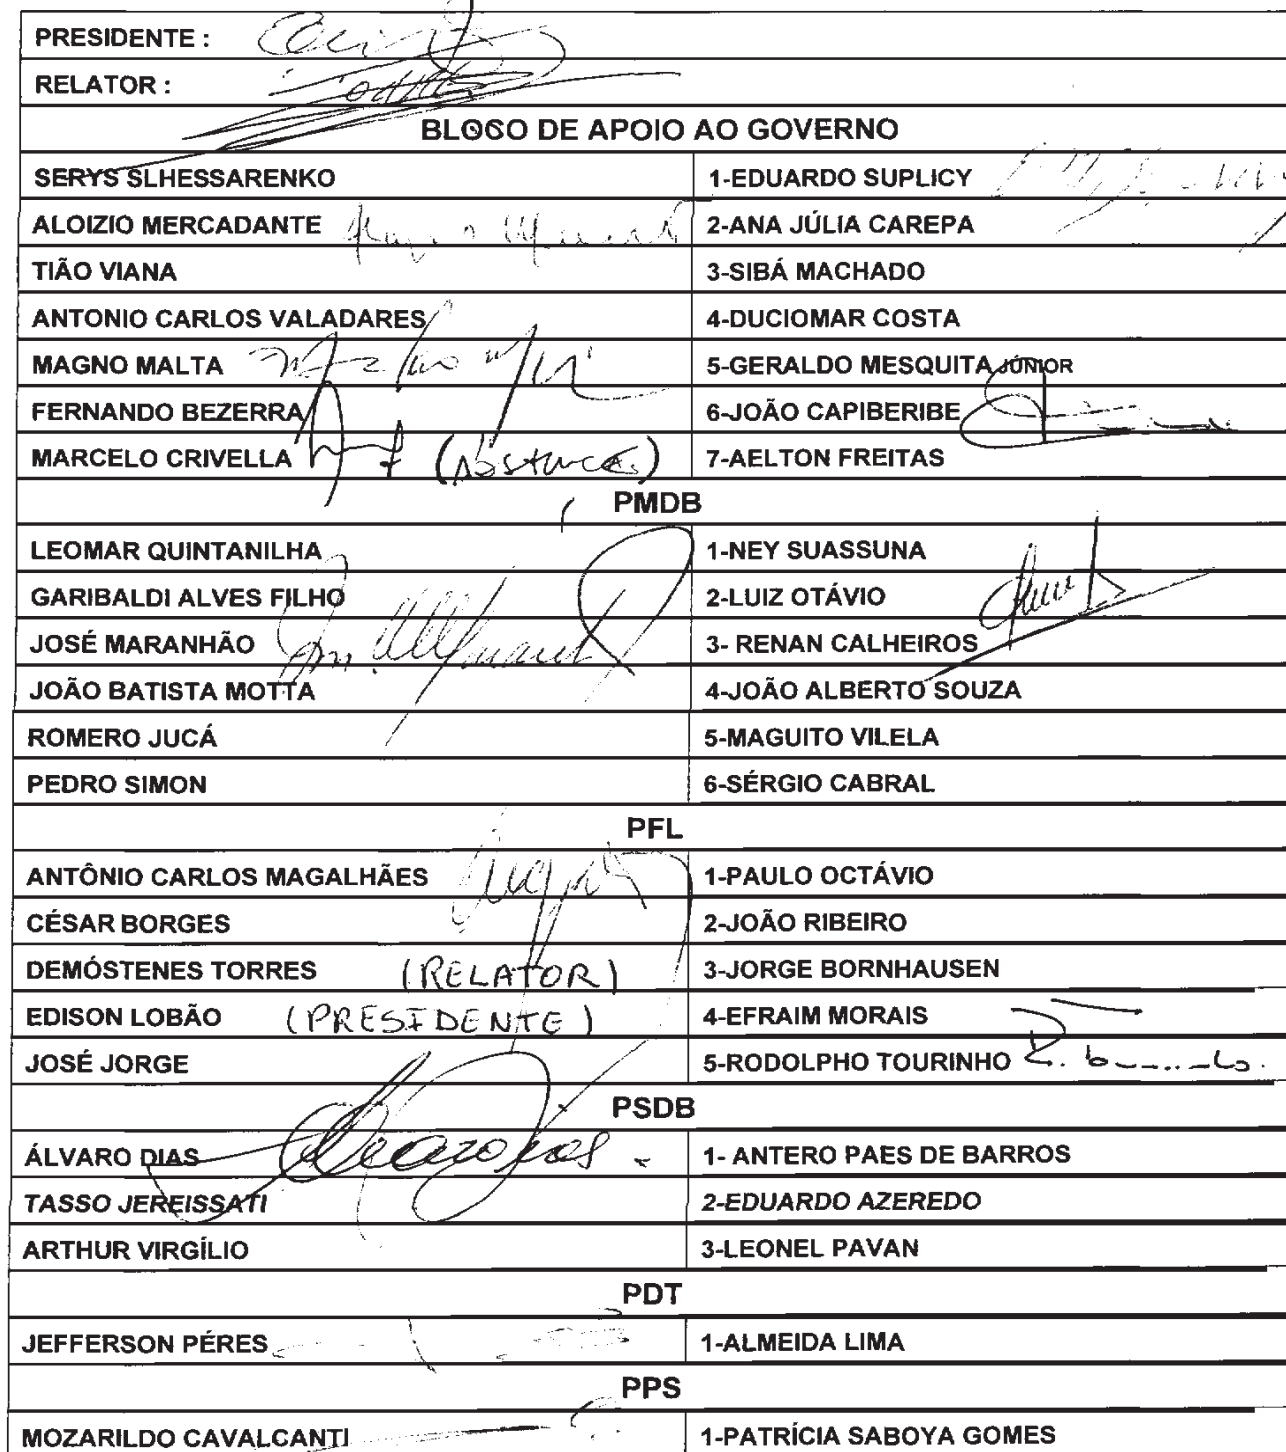 PRESIDENTE :
RELATOR :
BLOSO DE APOIO AO GOVERNO
SERYS SLHESSARENKO 1-EDUARDO SUPLICY
ALOIZIO MERCADANTE 2-ANA JÚLIA CAREPA
TIÃO VIANA 3-SIBÁ MACHADO
ANTONIO CARLOS VALADARES 4-DUCIOMAR COSTA
MAGNO MALTA 5-GERALDO MESQUITA JÚNIOR
FERNANDO BEZERRA 6-JOÃO CAPIBERIBE
MARCELO CRIVELLA 7-AELTON FREITAS
PMDB
LEOMAR QUINTANILHA 1-NEY SUASSUNA
GARIBALDI ALVES FILHO 2-LUIZ OTÁVIO
JOSÉ MARANHÃO 3- RENAN CALHEIROS
JOÃO BATISTA MOTTA 4-JOÃO ALBERTO SOUZA
ROMERO JUCÁ 5-MAGUITO VILELA
PEDRO SIMON 6-SÉRGIO CABRAL
PFL
ANTÔNIO CARLOS MAGALHÃES 1-PAULO OCTÁVIO
CÉSAR BORGES 2-JOÃO RIBEIRO
DEMÓSTENES TORRES (RELATOR) 3-JORGE BORNHAUSEN
EDISON LOBÃO (PRESIDENTE) 4-EFRAIM MORAIS
JOSÉ JORGE 5-RODOLPHO TOURINHO
PSDB
ÁLVARO DIAS 1- ANTERO PAES DE BARROS
TASSO JEREISSATI 2-EDUARDO AZEREDO
ARTHUR VIRGÍLIO 3-LEONEL PAVAN
PDT
JEFFERSON PÉRES 1-ALMEIDA LIMA
PPS
MOZARILDO CAVALCANTI 1-PATRÍCIA SABOYA GOMES